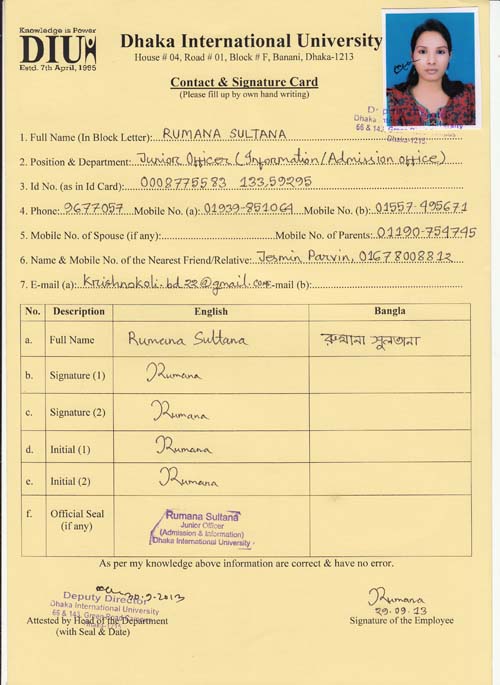 Knowledge is Power
DIU
Estd. 7th April, 1995
Dhaka International University
House # 04, Road # 01, Block # F, Banani, Dhaka-1213
Contact & Signature Card
(Please fill up by own hand writing)
Dhaka-1215.
1. Full Name (In Block Letter): RUMANA SULTANA
2. Position & Department: Junior Officer (Information/Admission office)
3. Id No. (as in Id Card): 0008775583 133,59295
4. Phone: 9677057 Mobile No. (a): 01939-851064 Mobile No. (b): 01557-495671
5. Mobile No. of Spouse (if any): Mobile No. of Parents: 01190-754745
6. Name & Mobile No. of the Nearest Friend/Relative: Jesmin Parvin, 01678008812
7. E-mail (a): krishnokoli.bd22@gmail.com E-mail (b):
No. Description English Bangla
a. Full Name Rumana Sultana রুমানা সুলতানা
b. Signature (1) Rumana
c. Signature (2) Rumana
d. Initial (1) Rumana
e. Initial (2) Rumana
f. Official Seal (if any)
Rumana Sultana
Junior Officer
(Admission & Information)
Dhaka International University
As per my knowledge above information are correct & have no error.
30.9.2013
Deputy Director
Dhaka International University
66 & 143, Green Road
Attested by Head of the Department
(with Seal & Date)
Rumana
29.09.13
Signature of the Employee